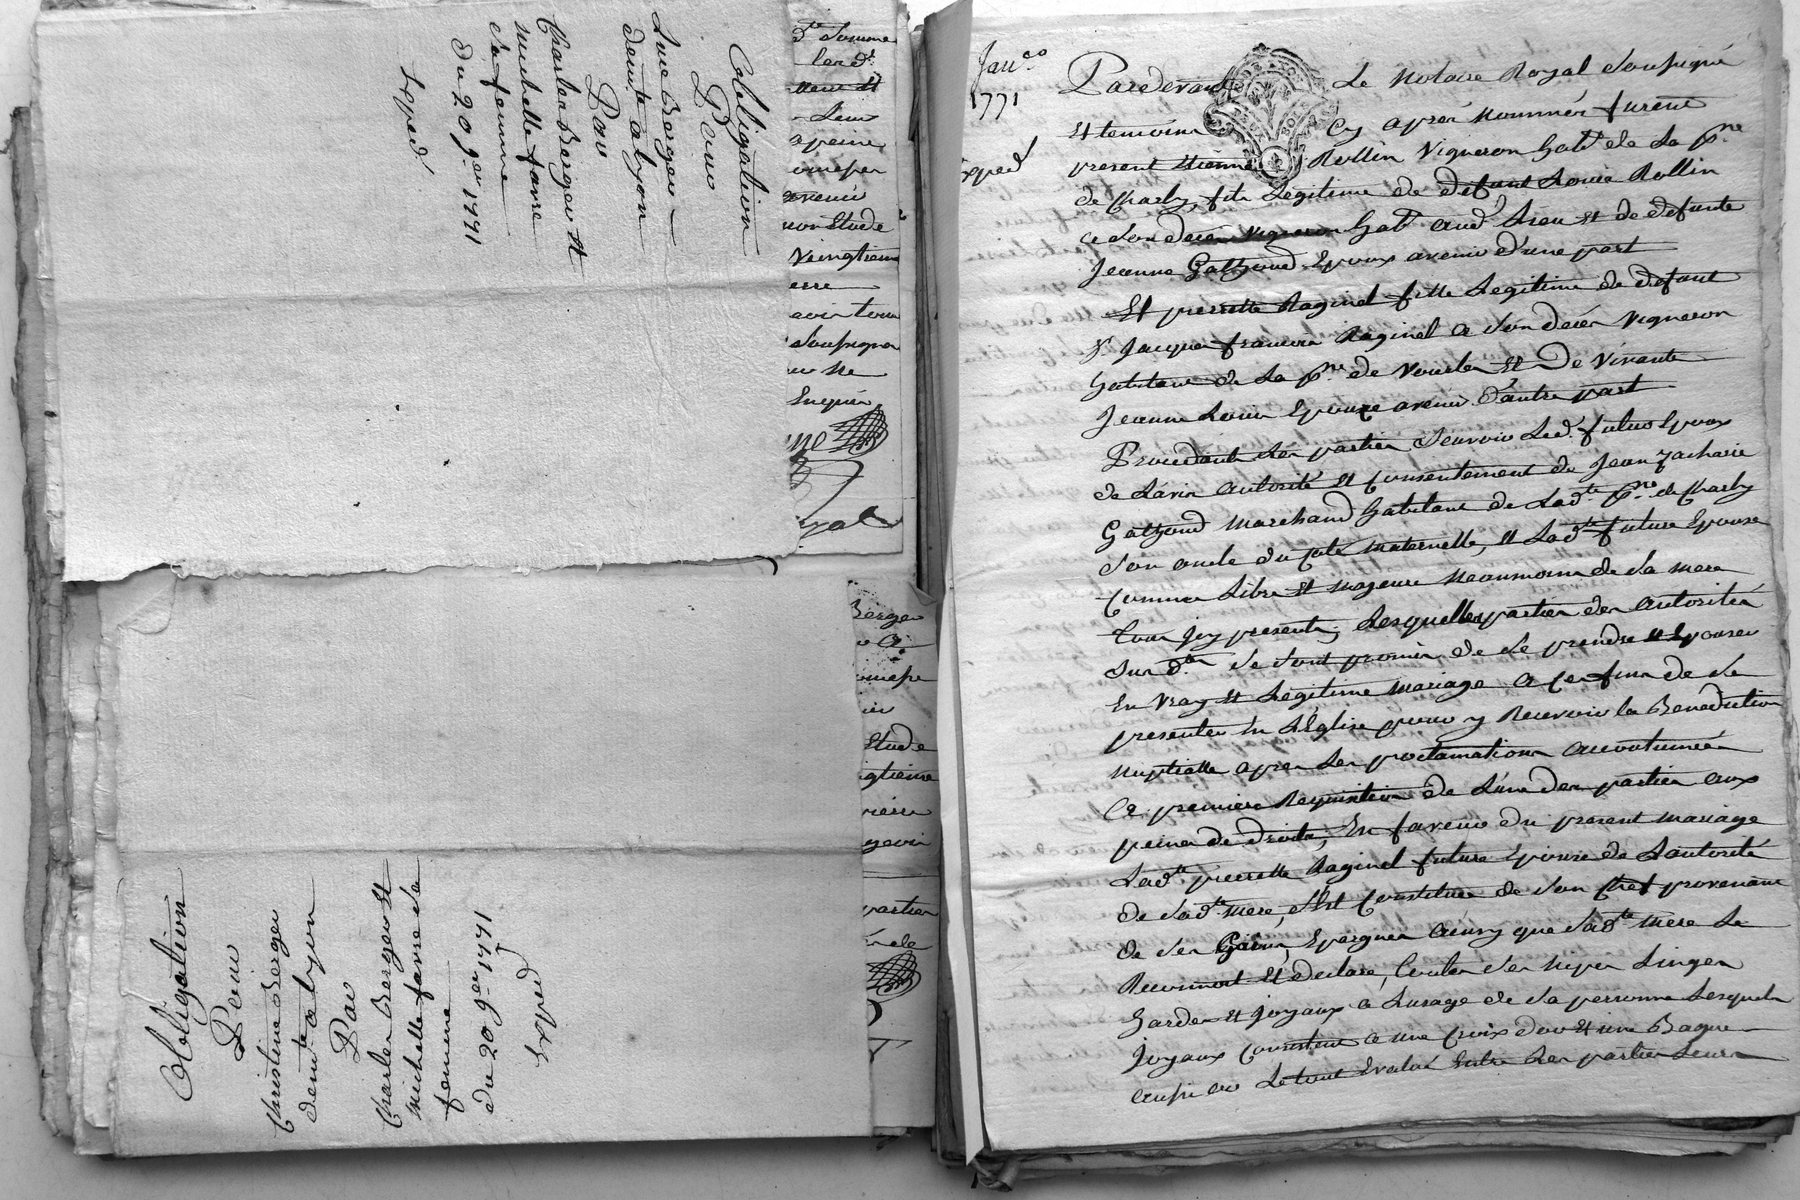 Obligation
Pour
Lucie Berger
demte a Lyon
Par
Charles Berger et
michelle favre
sa femme
du 20 9.er 1771
Exped.
Obligation
Pour
Christine Berger
demte a Lyon
Par
Charles Berger et
michelle favre sa
femme
du 20 9.er 1771
Exped
de somme
leur
a peine
avenir
mon Etude
Vingtieme
avoir
soussigne
ne
Enquis
Royal
Berger
Etude
ngtieme
partie
Janv.
1771
exped
Pardevant Le Notaire Royal soussigné
et temoins Cy aprés Nommés furent
present Etienne Rollin Vigneron habt. de la pse.
de Charly, fils Legitime de défunt Louis Rollin
a son deces vigneron habt. aud. Lieu et de defunte
Jeanne Gathoud Epoux avenir d'une part
Et pierrette Raginel fille Legitime de defunt
Sr. Jacques francois Raginel a son deces vigneron
habitant de la pse. de Vourles et de vivante
Jeanne Louis Epouze avenir d'autre part
Procedants les parties scavoir Led. futur Epoux
de Lavis autorité et Consentement de Jean Zacharie
Gathoud Marchand habitant de Ladte. pse. de Charly
son oncle du Coté Maternelle, et Ladte. future Epouse
Comme Libre et Majeure Neanmoins de sa mere
tous jcy presents; Lesquelles parties des autorités
susdtes. se sont promis de se prendre et Epouser
En vray et Legitime mariage a ces fins de se
presenter en L'Eglise pour y Recevoir la Benediction
nuptialle apres les proclamations accoutumées
a premiere Requisition de L'une des parties aux
peines de droits, En faveur du present mariage
Ladte. pierrette Raginel future Epouse de Lautorité
de sadte. mere, s'est Constituée de son Chef provenant
de ses Gains, Epargnes ainsy que sadte. mere Le
Reconnoit et declare, toutes ses nipes Linges
hardes et Joyaux a Lusage de sa personne Lesquels
Joyaux Consistent a une Croix dor et une Bague
aussi or Le tout Evalué Entre Les parties Leurs